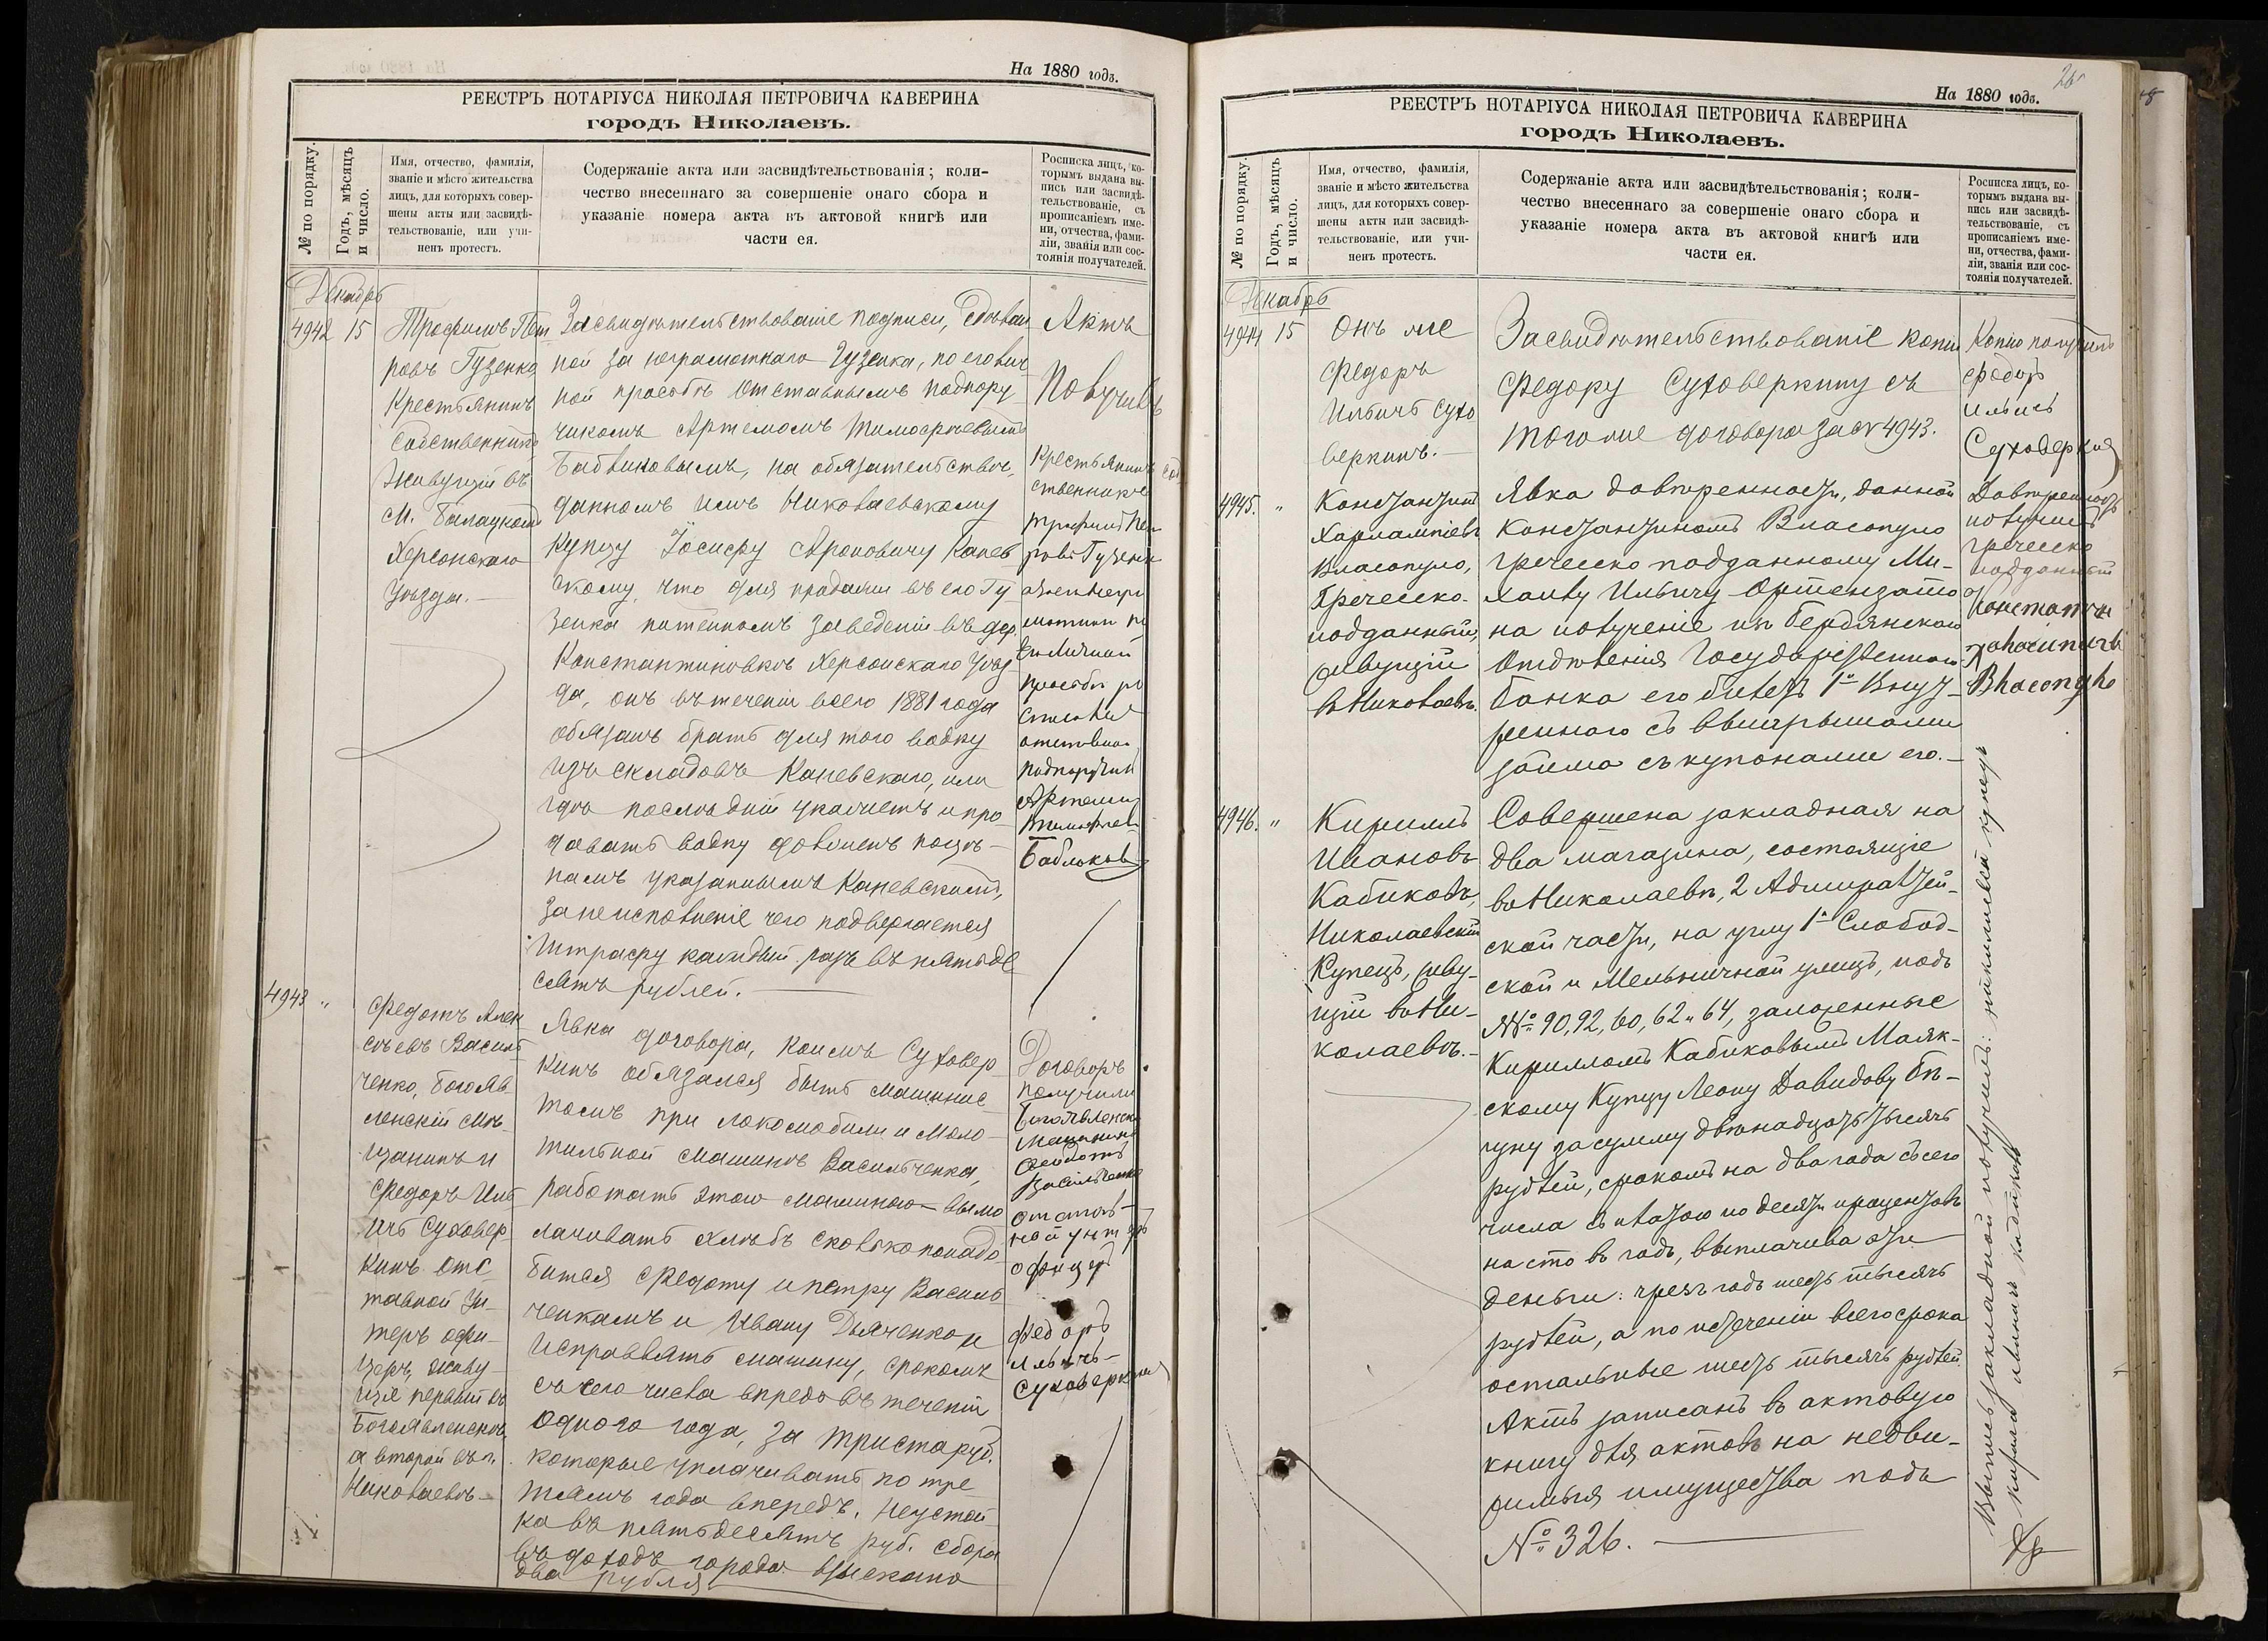 На 1880 годъ.
РЕЕСТРЪ НОТАРІУСА НИКОЛАЯ ПЕТРОВИЧА КАВЕРИНА
городъ Николаевъ.
№ по порядку.
Годъ, мѣсяцъ
и число.
Имя, отчество, фамилія,
званіе и мѣсто жительства
лицъ, для которыхъ совер-
шены акты или засвидѣ-
тельствованіе, или учи-
ненъ протестъ.
Содержаніе акта или засвидѣтельствованія; коли-
чество внесеннаго за совершеніе онаго сбора и
указаніе номера акта въ актовой книгѣ или
части ея.
Росписка лицъ, ко-
торымъ выдана вы-
пись или засвидѣ-
тельствованіе, съ
прописаніемъ име-
ни, отчества, фами-
ліи, званія или сос-
тоянія получателей.
Декабрь
4942 15
Трофимъ Пет
ровъ Гузенко,
Крестьянинъ
Собственникъ
Живущій въ
М. Балацкомъ
Херсонскаго
Уѣзда.—
Засвидѣтельствованіе подписи, сдѣлан
ной за неграмотнаго Гузенка, по его лич
ной просьбѣ отставнымъ подпору
чикомъ Артемомъ Тимофѣевымъ
на обязательствѣ,
данномъ имъ Николаевскому
Купцу Іосифу Ароновичу Канев
скому, что для продажи въ его Гу
зенка питейномъ заведеніи въ дер.
Константиновкѣ Херсонскаго Уѣз
да, онъ въ теченіи всего 1881 года
обязанъ брать для того водку
изъ складовъ Каневскаго, или
гдѣ послѣдній укажетъ и про
давать водку
указаннымъ Каневскимъ,
за неисполненіе чего подвергается
Штрафу каждый разъ въ пятьде
сятъ рублей.—
Актъ
Получилъ
Крестьянинъ соб
ственникъ
Трофимъ Пет
ровъ Гузенко
а за неграм
отнаго по
его личной
просьбѣ ро
списался
отставной
подпоручикъ
Артемъ
Тимофѣев
4943 "
Федотъ Алек
сѣевъ Василь
ченко, Богояв
ленскій Мѣ-
щанинъ и
Федоръ Иль
ичъ Суховер
кинъ отс
тавной Ун-
теръ офи-
церъ, живу-
щія первый въ
Богоявленскѣ,
а второй въ г.
Николаевѣ—
Явка договора, коимъ Суховер
кинъ обязался быть машинис
томъ при локомобили и моло-
тильной машинѣ Васильченка,
работать этою машиною—вымо
лачивать хлѣбъ сколько понадо
бится Федоту и Петру Василь
ченкамъ и Ивану Дьяченко и
исправлять машину, срокомъ
съ сего числа впредь въ теченіи
одного года, за триста руб.
которые уплачивать по тре
тямъ года впередъ. Неустой-
ка въ пятьдесятъ руб. Сбора
въ доходъ города взыскано
два рубля
Договоръ
получили
Богоявленскі
мещанинъ
Федотъ
Васильченко
отстав-
ной унтеръ
офицеръ
Федоръ
Ильичъ-
Суховеркин
26
На 1880 годъ.
РЕЕСТРЪ НОТАРІУСА НИКОЛАЯ ПЕТРОВИЧА КАВЕРИНА
городъ Николаевъ.
№ по порядку.
Годъ, мѣсяцъ
и число.
Имя, отчество, фамилія,
званіе и мѣсто жительства
лицъ, для которыхъ совер-
шены акты или засвидѣ-
тельствованіе, или учи-
ненъ протестъ.
Содержаніе акта или засвидѣтельствованія; коли-
чество внесеннаго за совершеніе онаго сбора и
указаніе номера акта въ актовой книгѣ или
части ея.
Росписка лицъ, ко-
торымъ выдана вы-
пись или засвидѣ-
тельствованіе, съ
прописаніемъ име-
ни, отчества, фами-
ліи, званія или сос-
тоянія получателей.
Декабрь
4944 15
Онъ же
Федоръ
Ильичъ Сухо
веркинъ.—
Засвидѣтельствованіе копіи
Федору Суховеркину съ
того же договора за № 4943.
Копію получилъ
Федоръ
Ильичъ
Суховеркин
4945. "
Константинъ
Харлампіевъ
Власопуло,
Греческо-
подданный,
живущій
въ Николаевѣ.
Явка довѣренности, данной
Константиномъ Власопуло
греческо подданному Ми-
хаилу Ильичу Ортензато
на полученіе изъ Бердянскаго
Отдѣленія Государственнаго
банка его билетъ 1го Внут-
ренняго съ выигрышами
займа съ купонами его.—
Довѣренность
получилъ
греческо
подданный
Константин
4946. "
Кириллъ
Ивановъ
Кабиковъ,
Николаевскій
Купецъ, живу-
щій въ Ни-
колаевѣ.—
Совершена закладная на
два магазина, состоящіе
въ Николаевѣ, 2 Адмиралтей-
ской части, на углу 1й Слобод-
ской и Мельничной улицъ, подъ
№№ 90, 92, 60, 62 и 64, заложенные
Кирилломъ Кабиковымъ Маяк-
скому Купцу Леону Давидову Бѣ-
гуну за сумму двѣнадцать тысячъ
рублей, срокомъ на два года съ сего
числа съ платою по десяти процентовъ
на сто въ годъ, выплачивая эти
деньги: чрезъ годъ шесть тысячъ
рублей, а по истеченіи всего срока
остальные шесть тысячъ рублей.
Актъ записанъ въ актовую
книгу для актовъ на недви-
жимыя имущества подъ
№ 326.—
Выпись закладной получилъ: николаевскій купецъ
Кирилъ Ивановъ Кабиковъ